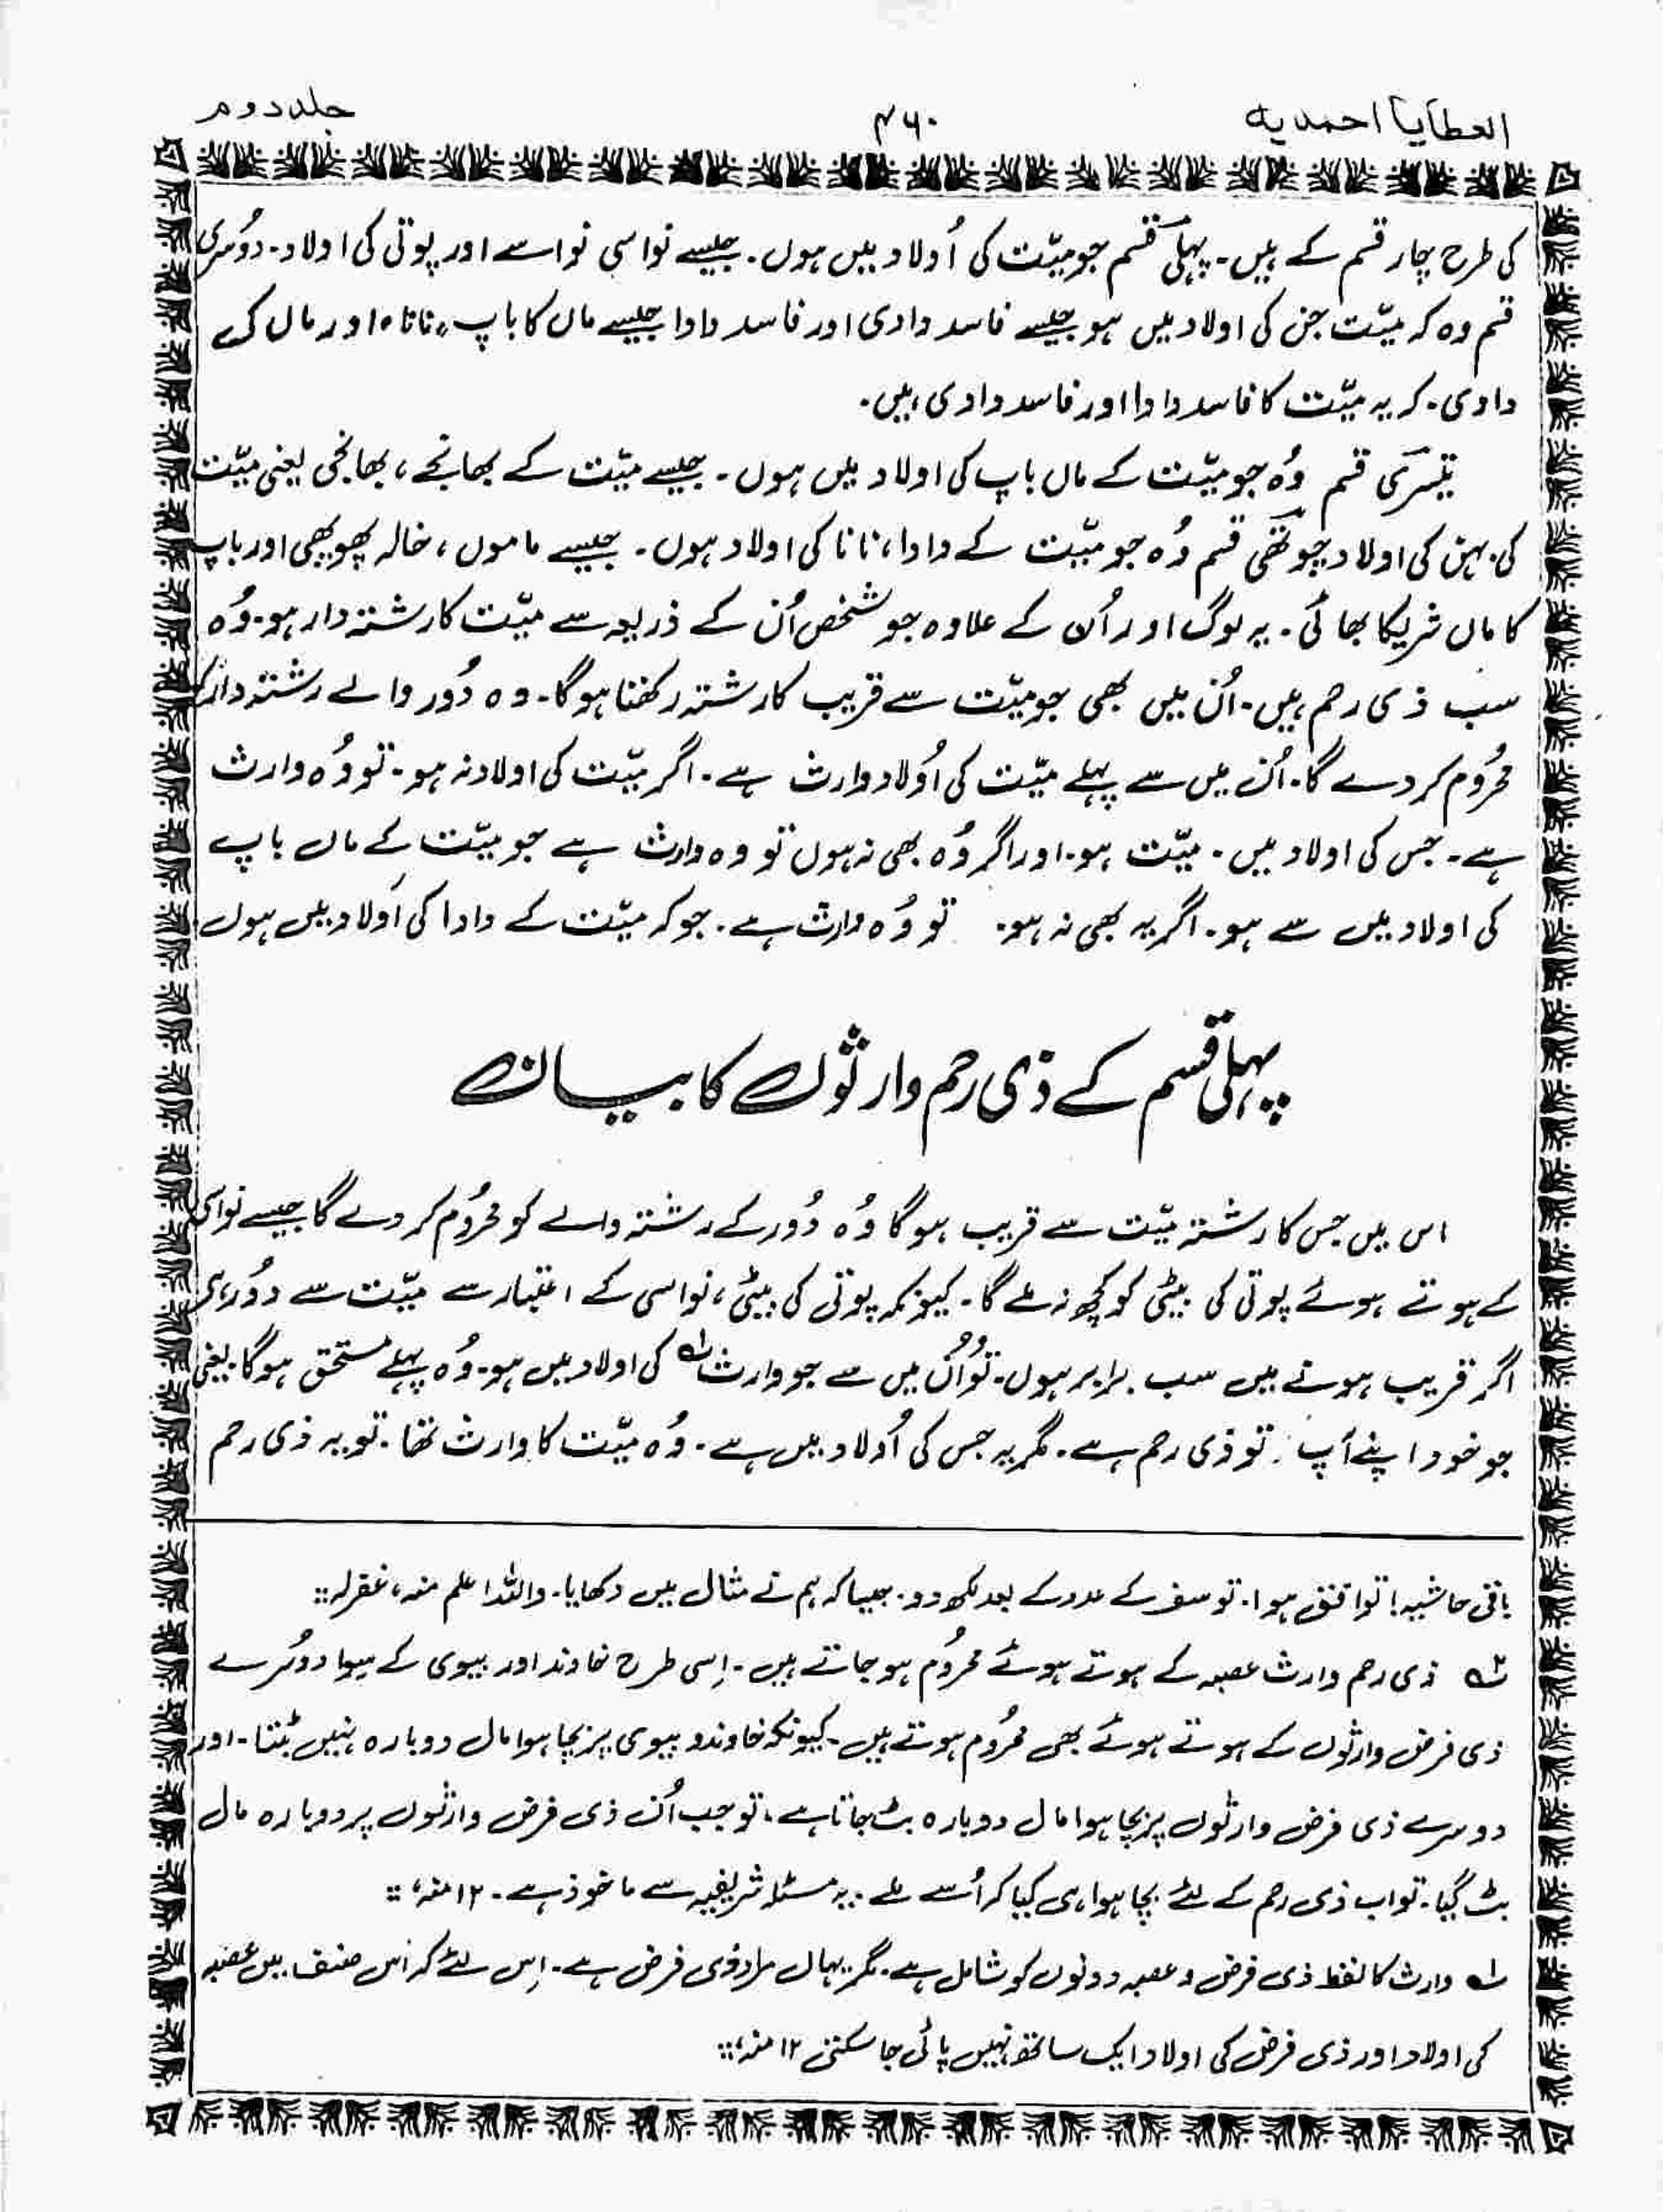 العطایا احمدیہ
۴۶۰
جلد دوم
کی طرح چار قسم کے ہیں۔ پہلی قسم جو میّت کی اُولاد میں ہوں۔ جیسے نواسی نواسے اور پوتی کی اولاد۔ دوُسری
قسم وہ کہ میّت جن کی اولاد میں ہو جیسے فاسد دادی اور فاسد دادا جیسے ماں کا باپ، نانا، اور ماں کی
دادی۔ کہ یہ میّت کا فاسد دادا اور فاسد دادی ہیں۔
تیسری قسم وُہ جو میّت کے ماں باپ کی اولاد میں ہوں۔ جیسے میّت کے بھانجے، بھانجی یعنی میّت
کی بہن کی اولاد چوتھی قسم وُہ جو میّت کے دادا، نانا کی اولاد ہوں۔ جیسے ماموں، خالہ پھوپھی اور باپ
کا ماں شریکا بھائی۔ یہ لوگ اور اُن کے علاوہ جو شخص اُن کے ذریعہ سے میّت کا رشتہ دار ہو۔ وُہ
سب ذی رحم ہیں۔ اُن میں بھی جو میّت سے قریب کا رشتہ رکھتا ہوگا۔ وہ دُور والے رشتہ دار کو
محرُوم کر دے گا۔ اُن میں سے پہلے میّت کی اُولاد وارث ہے۔ اگر میّت کی اولاد نہ ہو۔ تو وُہ وارث
ہے۔ جس کی اولاد میں۔ میّت ہو۔ اور اگر وُہ بھی نہ ہوں تو وہ وارث ہے جو میّت کے ماں باپ
کی اولاد میں سے ہو۔ اگر یہ بھی نہ ہو۔ تو وُہ وارث ہے۔ جو کہ میّت کے دادا کی اَولاد میں ہوں۔
پہلی قسم کے ذی رحم وارثوں کا بیان
اس میں جس کا رشتہ میّت سے قریب ہوگا وُہ دُور کے رشتہ والے کو محرُوم کر دے گا جیسے نواسی
کے ہوتے ہوئے پوتی کی بیٹی کو کچھ نہ ملے گا۔ کیونکہ پوتی کی بیٹی، نواسی کے اعتبار سے میّت سے دوُر ہی
اگر قریب ہونے میں سب برابر ہوں۔ تو اُن میں سے جو وارث؂۱ کی اولاد میں ہو۔ وُہ پہلے مستحق ہوگا۔ یعنی
جو خود اپنے آپ تو ذی رحم ہے۔ مگر یہ جس کی اُولاد میں ہے۔ وُہ میّت کا وارث تھا۔ تو یہ ذی رحم
باقی حاشیہ! توافق ہوا۔ تو سفر کے عدد کے بعد لکھ دو۔ جیسا کہ ہم نے مثال میں دکھایا۔ واللہ اعلم منہ، غفرلہ::
؂۲ ذی رحم وارث عصبہ کے ہوتے ہوئے محرُوم ہو جاتے ہیں۔ اِسی طرح خاوند اور بیوی کے سِوا دوُسرے
ذی فرض وارثوں کے ہوتے ہوئے بھی محرُوم ہوتے ہیں۔ کیونکہ خاوند و بیوی پر بچا ہوا مال دوبارہ نہیں بٹتا۔ اور
دوسرے ذی فرض وارثوں پر بچا ہوا مال دوبارہ بٹ جاتا ہے۔ تو جب اُن ذی فرض وارثوں پر دوبارہ مال
بٹ گیا۔ تو اب ذی رحم کے لئے بچا ہوا ہی کیا کہ اُسے ملے۔ یہ مسئلہ شریفیہ سے ماخوذ ہے۔ ۱۲ منہ، ::
؂۱ وارث کا لفظ ذی فرض و عصبہ دونوں کو شامل ہے۔ مگر یہاں مراد ذی فرض ہے۔ اِس لئے کہ اُس صنف میں عصبہ
کی اولاد اور ذی فرض کی اولاد ایک ساتھ نہیں پائی جا سکتی ۱۲ منہ، ::